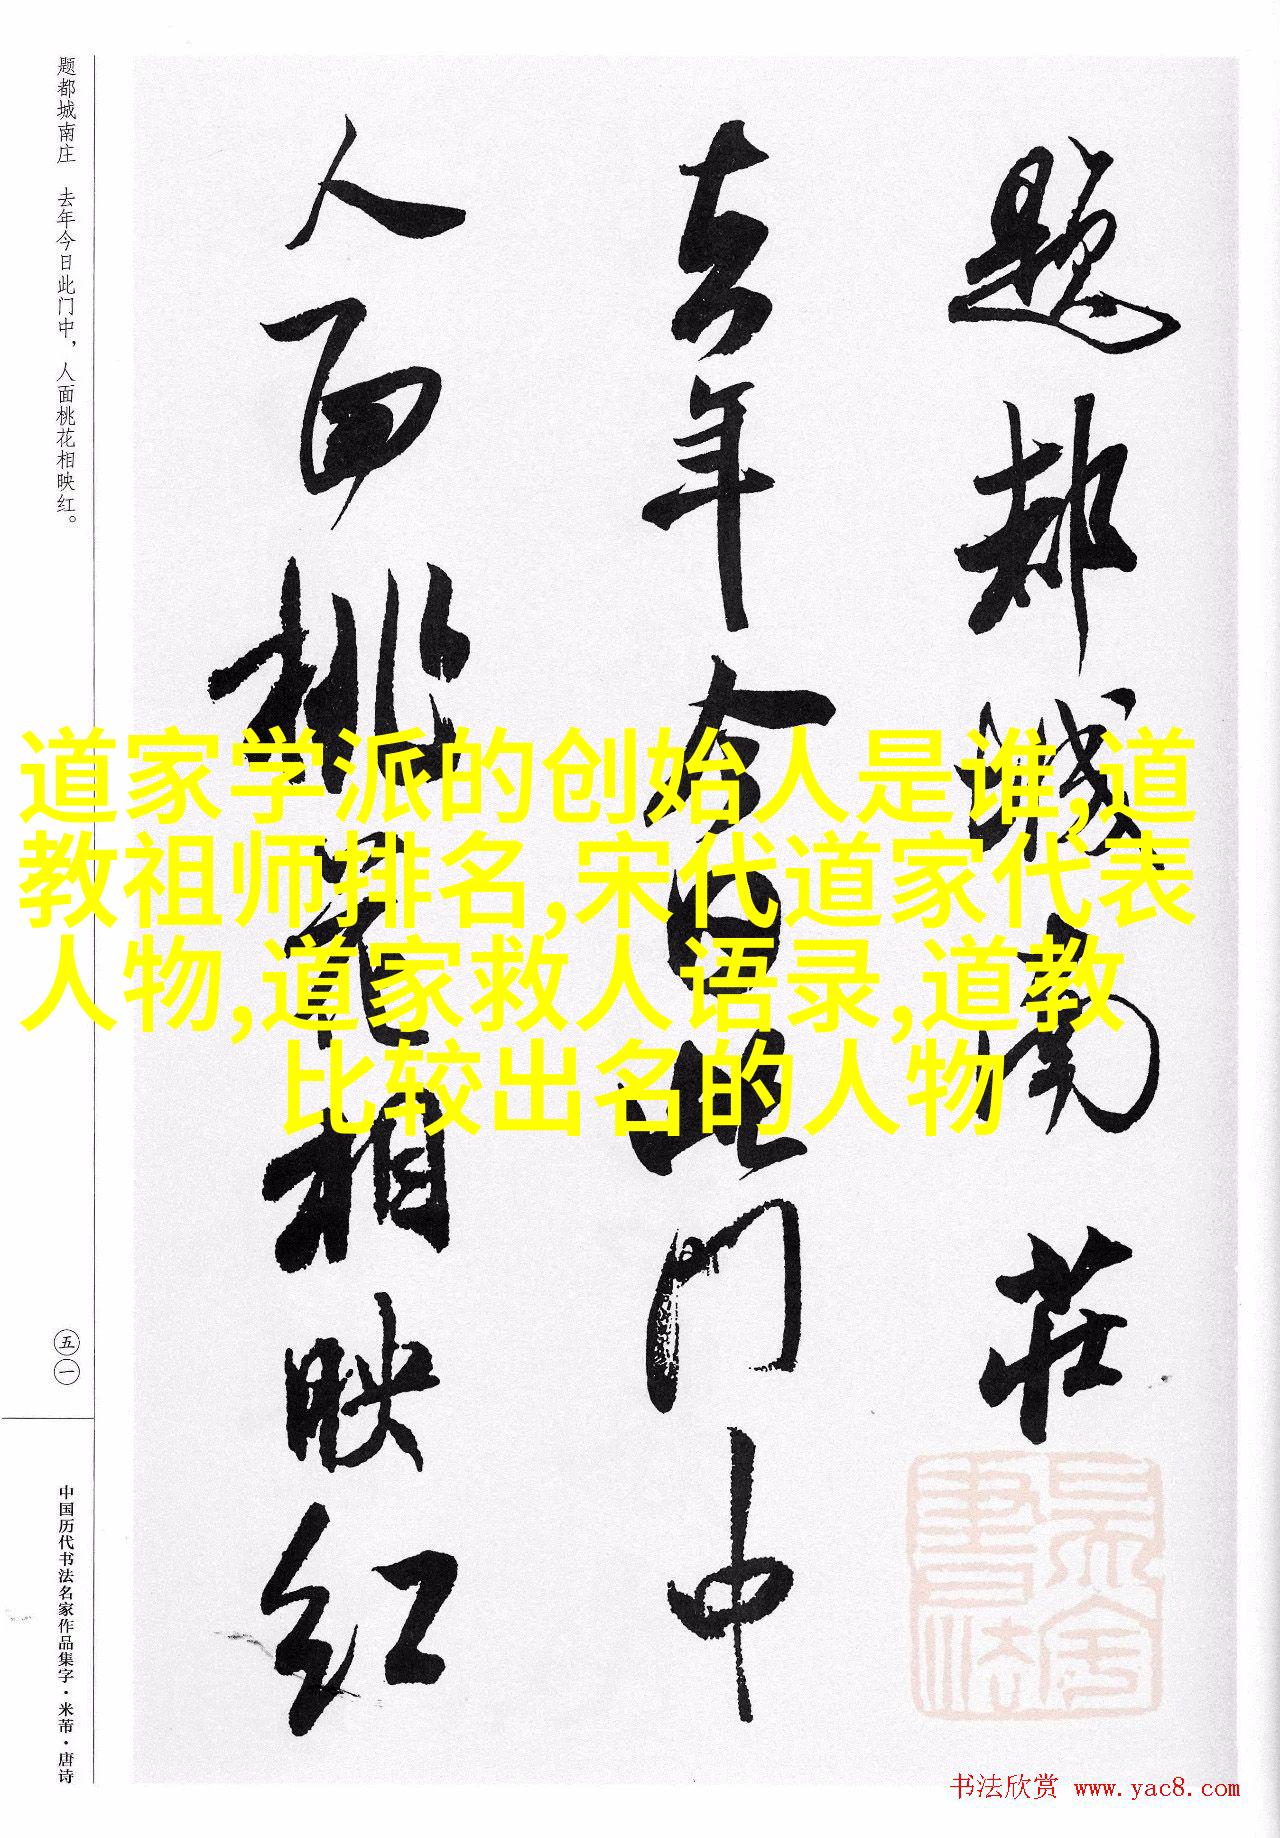 题都城南庄 去年今日此门中，人面桃花相映红。
题都城南莊
去年今日此门中
人面桃花相映红
道家学派的创始人是谁,道
教祖师排名,宋代道家代表
人物,道家救人语录,道教
比较出名的人物
五一
中国历代书法名家作品集字·米芾·唐诗
書法
书法欣赏 www.yac8.com